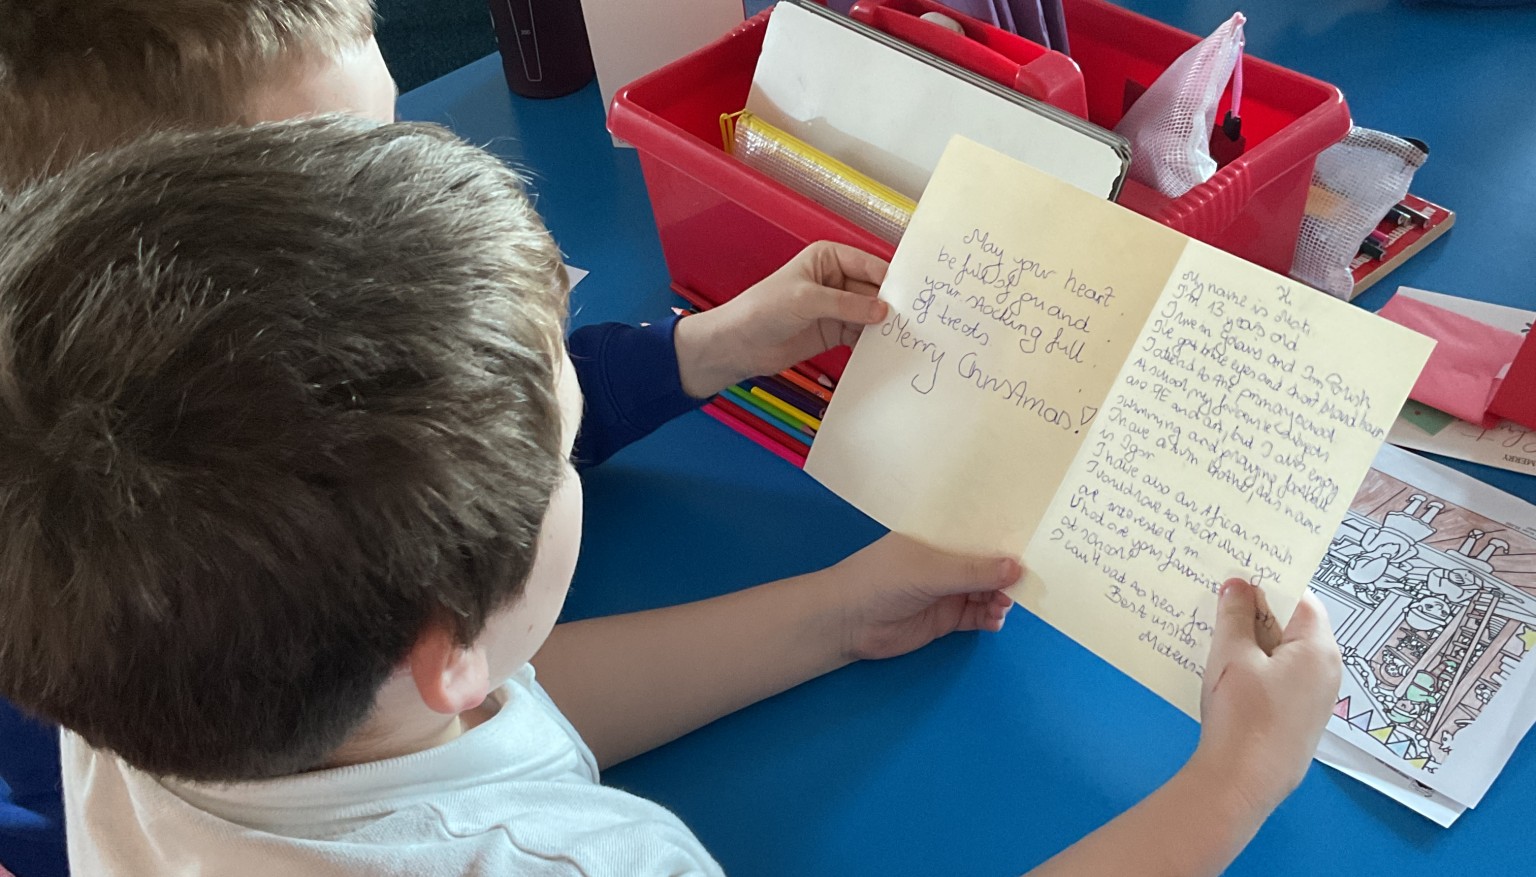 May your heart
be full of joy and
your stocking full
of treats.
Merry Christmas!
Hi
My name is
I'm 13 years old
I live in and I'm Polish
I've got blue eyes and short blond hair
I attend to the primary school
At school my favourite subjects
are PE and art, but I also enjoy
swimming and playing football
I have a twin brother, his name
is Igor
I have also an African snail
I would love to hear what you
are interested in
What are your favourite
at school?
I can't wait to hear from
Best wishes
MERRY